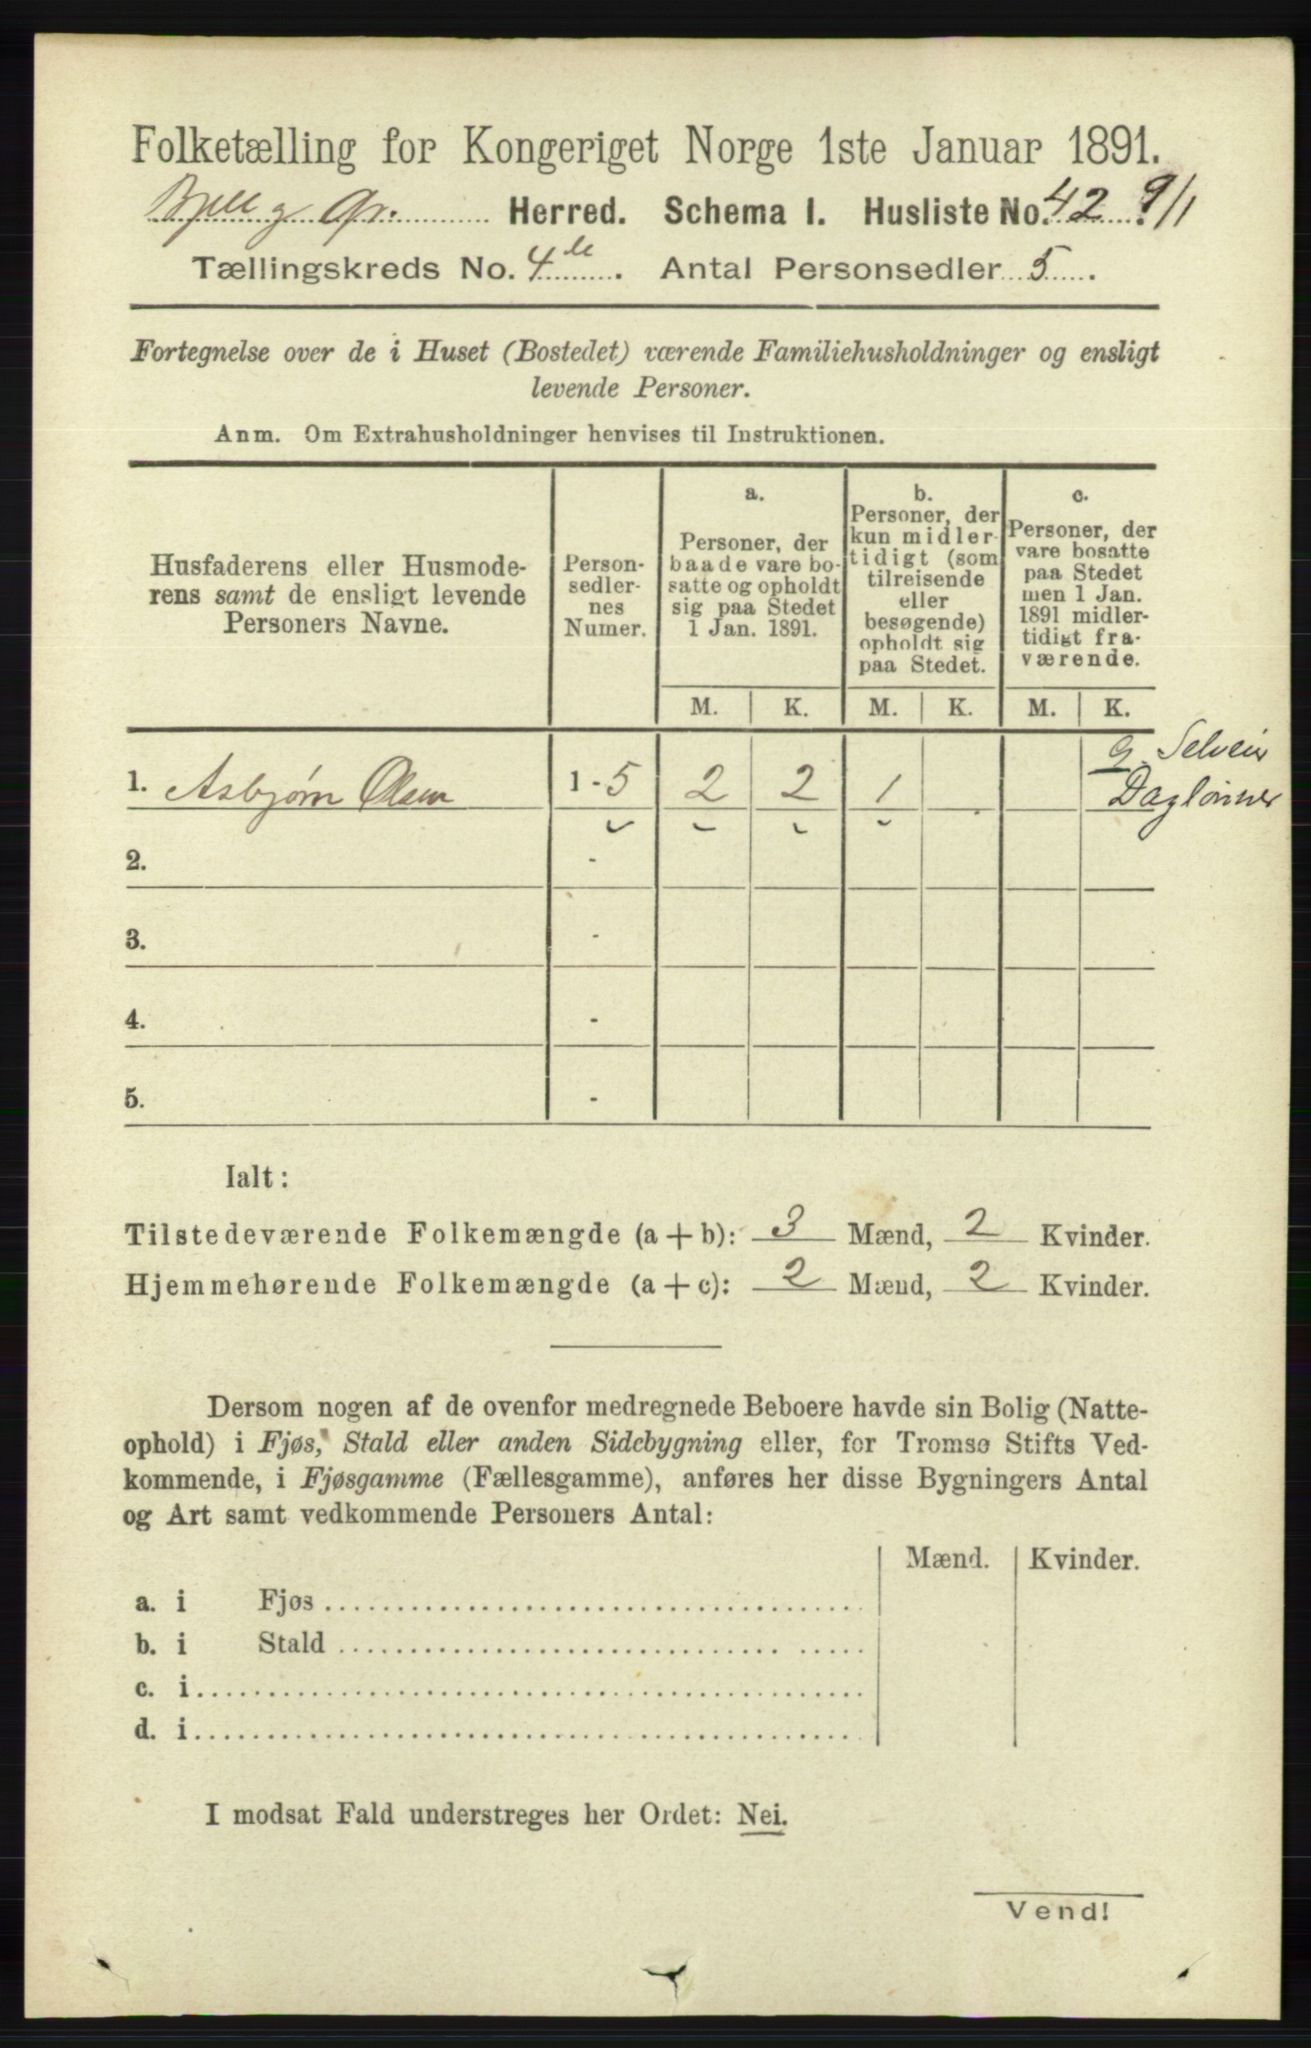 Folketælling for Kongeriget Norge 1ste Januar 1891.
Bjell og Gr. Herred. Schema I. Husliste No. 42 9/1
Tællingskreds No. 4de. Antal Personsedler 5.
Fortegnelse over de i Huset (Bostedet) værende Familiehusholdninger og ensligt
levende Personer.
Anm. Om Extrahusholdninger henvises til Instruktionen.
Husfaderens eller Husmode-
rens samt de ensligt levende
Personers Navne.
Person-
sedler-
nes
Numer.
a.
Personer, der
baade vare bo-
satte og opholdt
sig paa Stedet
1 Jan. 1891.
b.
Personer, der
kun midler-
tidigt (som
tilreisende
eller
besøgende)
opholdt sig
paa Stedet.
c.
Personer, der
vare bosatte
paa Stedet
men 1 Jan.
1891 midler-
tidigt fra-
værende.
M. K. M. K. M. K.
G. Selveier
1. Asbjørn Olsen 1 - 5 2 2 1 Daglønner
2. -
3. -
4. -
5. -
Ialt:
Tilstedeværende Folkemængde (a + b): 3 Mænd, 2 Kvinder.
Hjemmehørende Folkemængde (a + c): 2 Mænd, 2 Kvinder.
Dersom nogen af de ovenfor medregnede Beboere havde sin Bolig (Natte-
ophold) i Fjøs, Stald eller anden Sidebygning eller, for Tromsø Stifts Ved-
kommende, i Fjøsgamme (Fællesgamme), anføres her disse Bygningers Antal
og Art samt vedkommende Personers Antal:
Mænd. Kvinder.
a. i Fjøs
b. i Stald
c. i
d. i
I modsat Fald understreges her Ordet: Nei.
Vend!